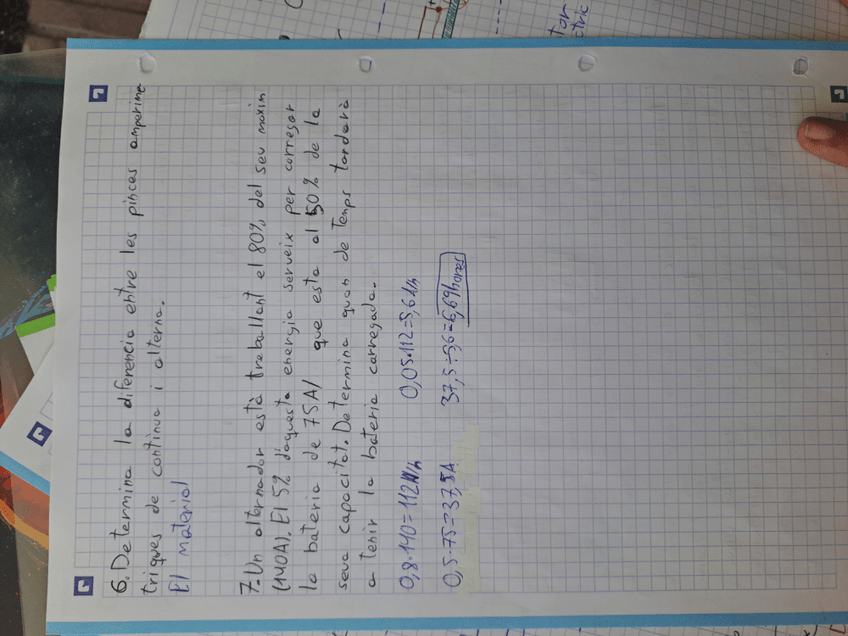 6. Determina la diferencia entre les pinces amperime
triques de continua i alterna.
El material
7. Un alternador està treballant el 80% del seu màxim
(140A). El 5% d'aquesta energia serveix per carregar
la bateria de 75A/ que esta al 50% de la
seva capacitat. Determina quan de Temps tardarà
a tenir la bateria carregada.
0,8·140=112A/h 0,05·112=5,6A/h
0,5·75=37,5A 37,5÷5,6=6,69hores